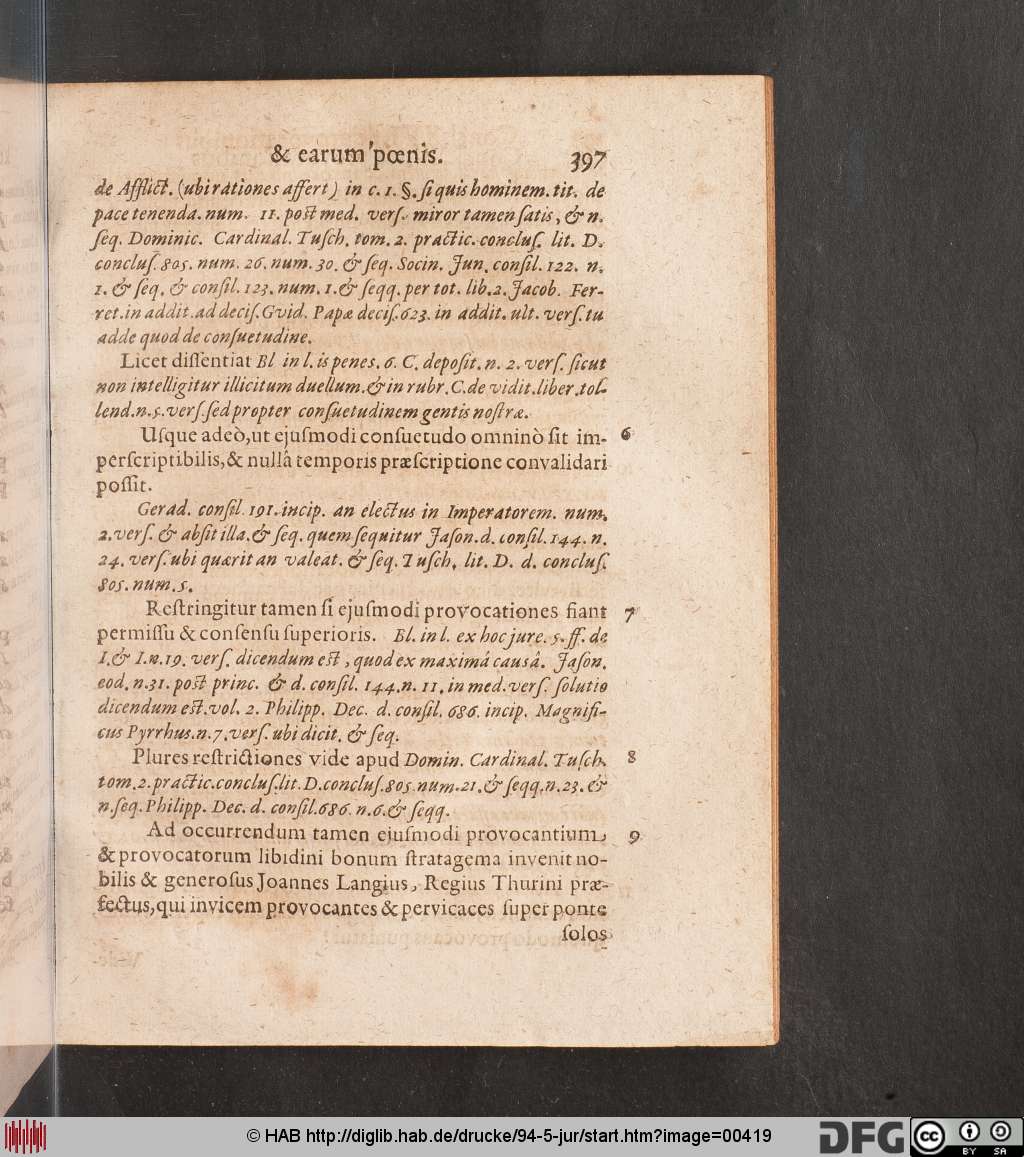 & earum pœnis. 397
de Afflict. (ubi rationes affert) in c. 1. §. si quis hominem. tit. de
pace tenenda. num. 11. post med. vers. miror tamen satis, & n.
seq. Dominic. Cardinal. Tusch. tom. 2. practic. conclus. lit. D.
conclus. 805. num. 26. num. 30. & seq. Socin. Jun. consil. 122. n.
1. & seq. & consil. 123. num. 1. & seqq. per tot. lib. 2. Jacob. Fer-
ret. in addit. ad decis. Gvid. Papæ decis. 623. in addit. ult. vers. tu
adde quod de consuetudine.
Licet dissentiat Bl in l. is penes. 6. C. deposit. n. 2. vers. sicut
non intelligitur illicitum duellum. & in rubr. C. de vidit. liber. tol-
lend. n. 5. vers. sed propter consuetudinem gentis nostræ.
Usque adeò, ut ejusmodi consuetudo omninò sit im- 6
perscriptibilis, & nullâ temporis præscriptione convalidari
possit.
Gerad. consil. 191. incip. an electus in Imperatorem. num.
2. vers. & absit illa. & seq. quem sequitur Jason. d. consil. 144. n.
24. vers. ubi quærit an valeat. & seq. Tusch. lit. D. d. conclus.
805. num. 5.
Restringitur tamen si ejusmodi provocationes fiant 7
permissu & consensu superioris. Bl. in l. ex hoc jure. 5. ff. de
I. & I. n. 19. vers. dicendum est, quod ex maximâ causâ. Jason.
eod. n. 31. post princ. & d. consil. 144. n. 11. in med. vers. solutio
dicendum est. vol. 2. Philipp. Dec. d. consil. 686. incip. Magnifi-
cus Pyrrhus. n. 7. vers. ubi dicit. & seq.
Plures restrictiones vide apud Domin. Cardinal. Tusch. 8
tom. 2. practic. conclus. lit. D. conclus. 805. num. 21. & seqq. n. 23. &
n. seq. Philipp. Dec. d. consil. 686. n. 6. & seqq.
Ad occurrendum tamen ejusmodi provocantium, 9
& provocatorum libidini bonum stratagema invenit no-
bilis & generosus Joannes Langius, Regius Thurini præ-
fectus, qui invicem provocantes & pervicaces super ponte
solos
© HAB http://diglib.hab.de/drucke/94-5-jur/start.htm?image=00419
DFG cc BY SA